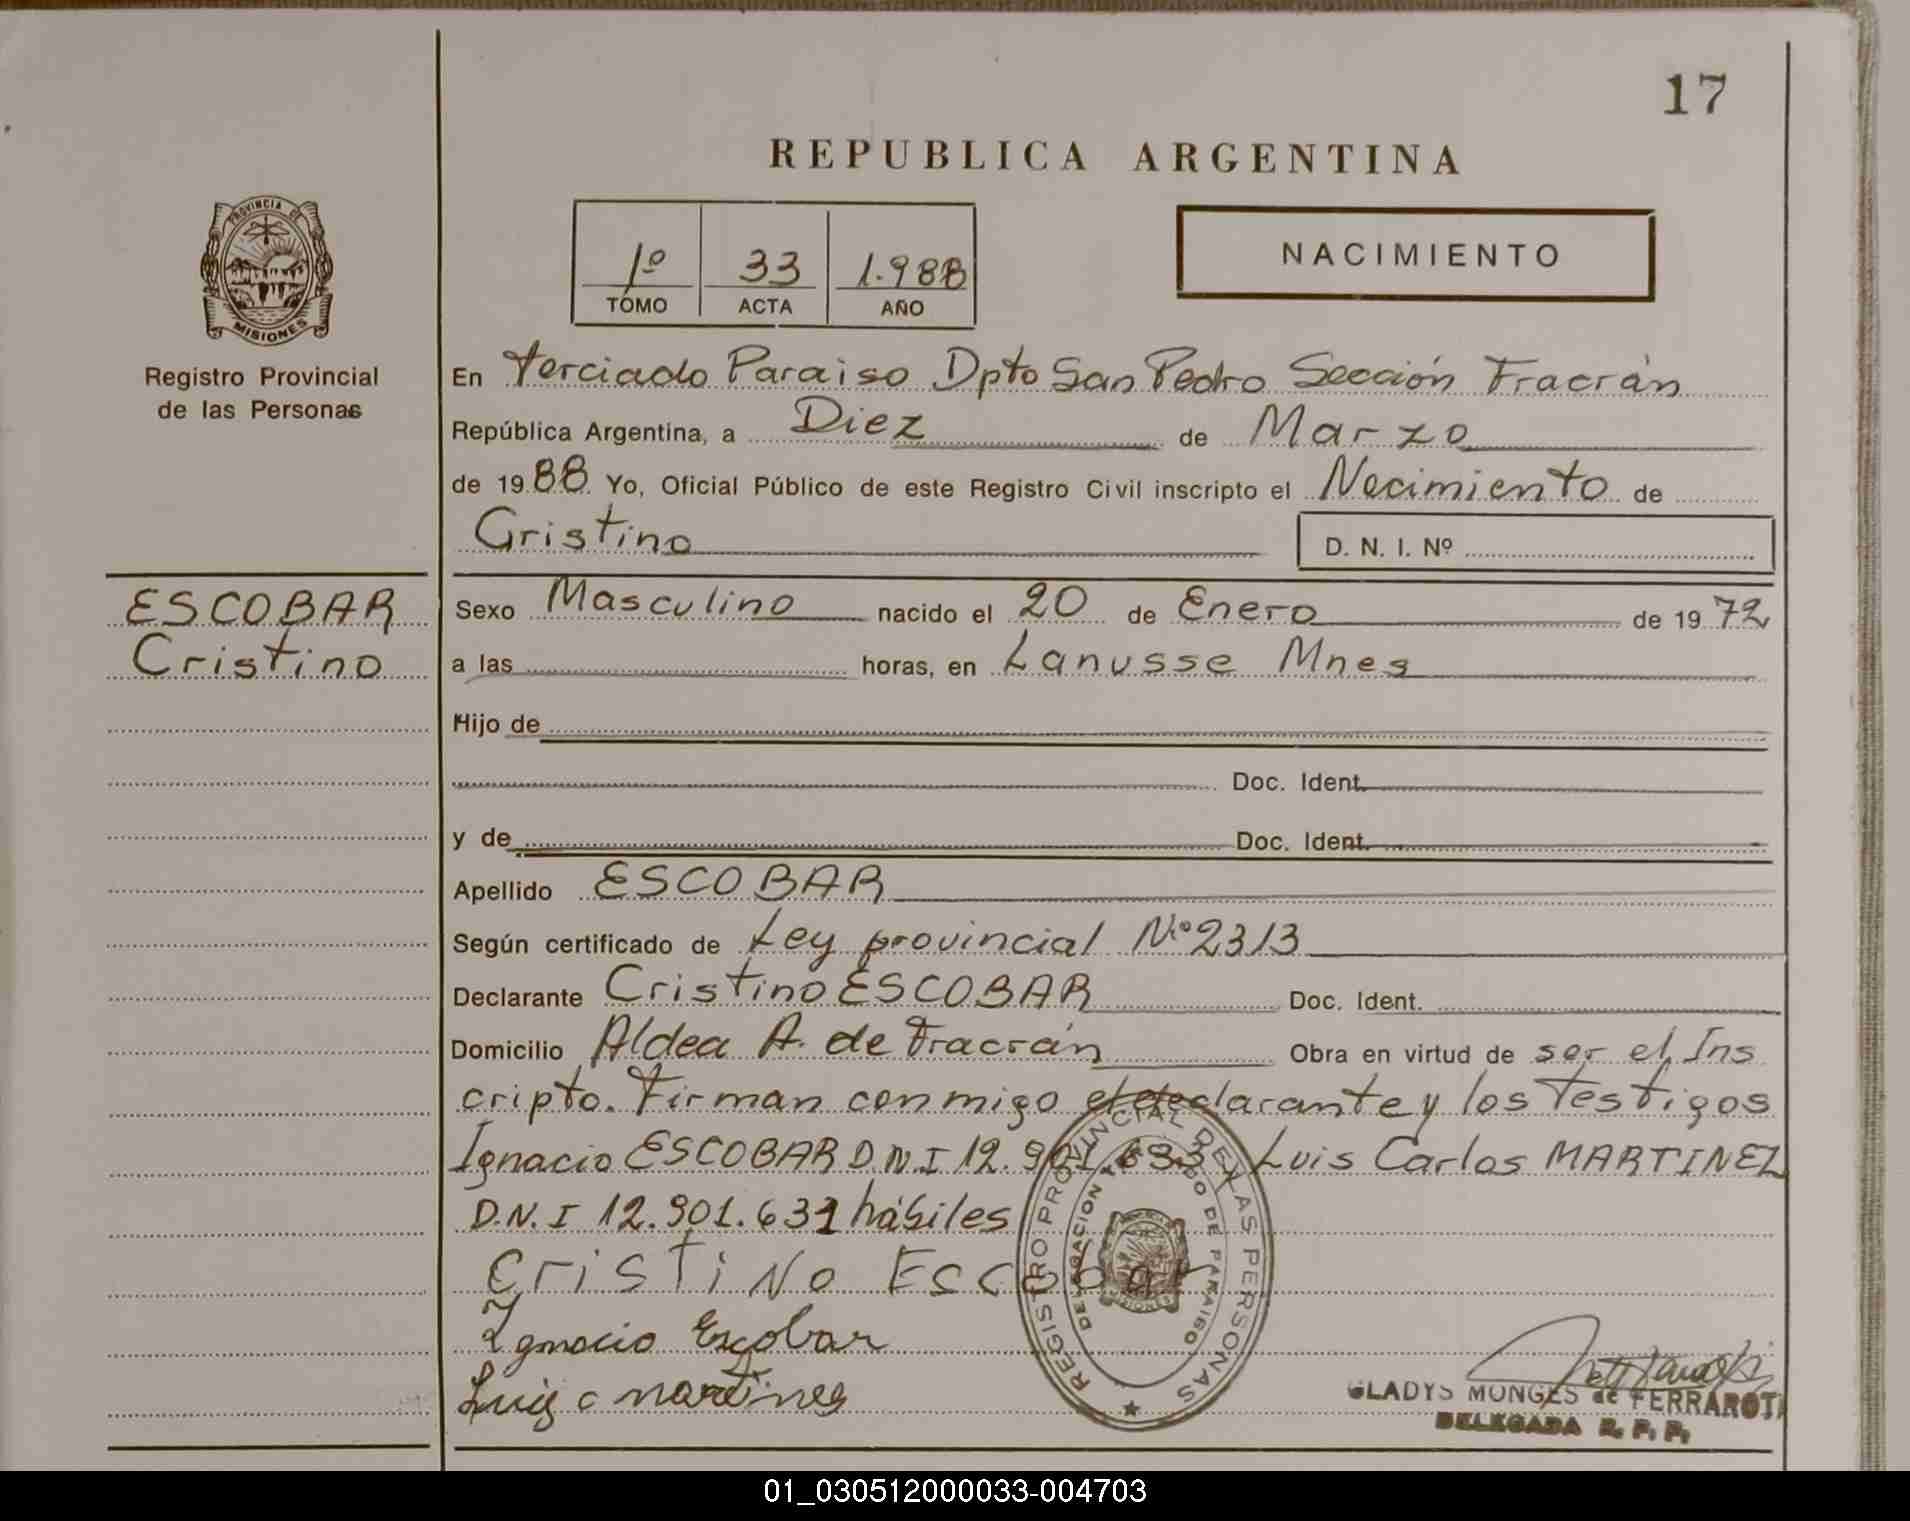 17
REPUBLICA ARGENTINA
PROVINCIA DE
MISIONES
Registro Provincial
de las Personas
1º 33 1.988
TOMO ACTA AÑO
NACIMIENTO
En Terciado Paraiso Dpto San Pedro Sección Fracrán
República Argentina, a Diez de Marzo
de 1988. Yo, Oficial Público de este Registro Civil inscripto el Necimiento de
Cristino D. N. I. Nº
ESCOBAR
Cristino
Sexo Masculino nacido el 20 de Enero de 1972
a las horas, en Lanusse Mnes
Hijo de
Doc. Ident.
y de Doc. Ident.
Apellido ESCOBAR
Según certificado de Ley provincial Nº 2313
Declarante Cristino ESCOBAR Doc. Ident.
Domicilio Aldea A. de Fracrán Obra en virtud de ser el Ins
cripto. Firman conmigo el declarante y los Testigos
Ignacio ESCOBAR D.N.I 12.901.633 y Luis Carlos MARTINEZ
D.N.I 12.901.631 hábiles
CRISTINO Escobar
Ignacio Escobar
Luis c martines
REGISTRO PROVINCIAL DE LAS PERSONAS
DELEGACION DE PARAISO
MISIONES
GLADYS MONGES de FERRAROTI
DELEGADA R. P. P.
01_030512000033-004703